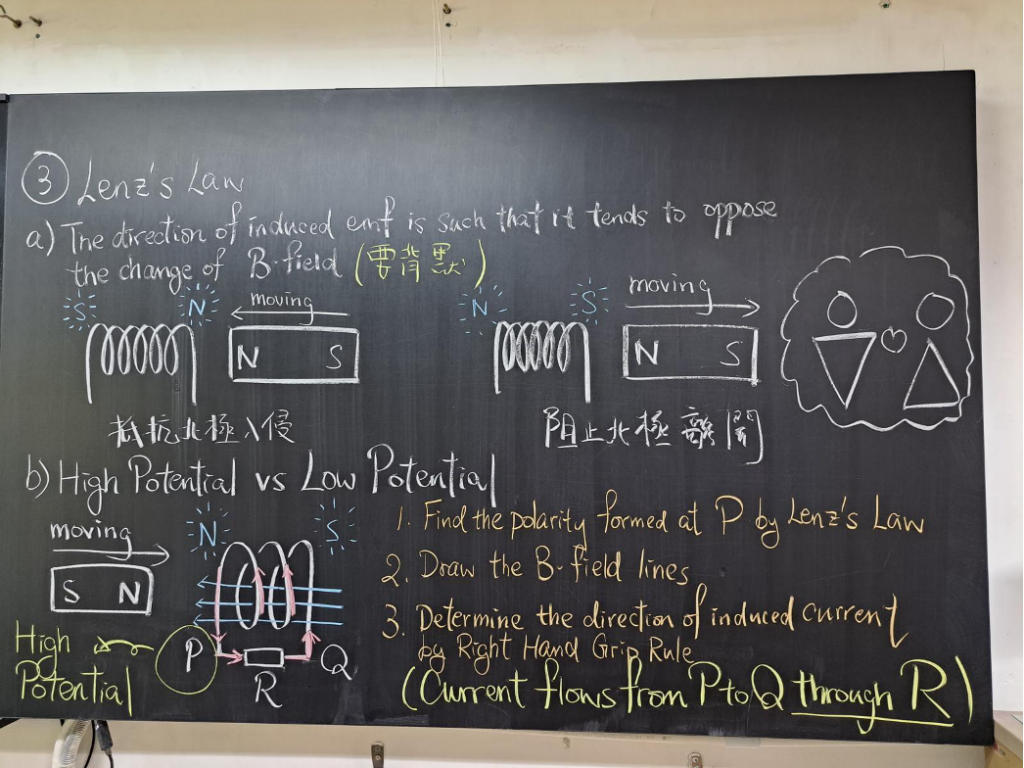 ③ Lenz's Law
a) The direction of induced emf is such that it tends to oppose
the change of B-field (要背默)
S N moving
N S
N S moving
N S
抵抗北極入侵
阻止北極離開
b) High Potential vs Low Potential
moving
S N
N S
High Potential
P R Q
1. Find the polarity formed at P by Lenz's Law
2. Draw the B-field lines
3. Determine the direction of induced current
by Right Hand Grip Rule
(Current flows from P to Q through R)